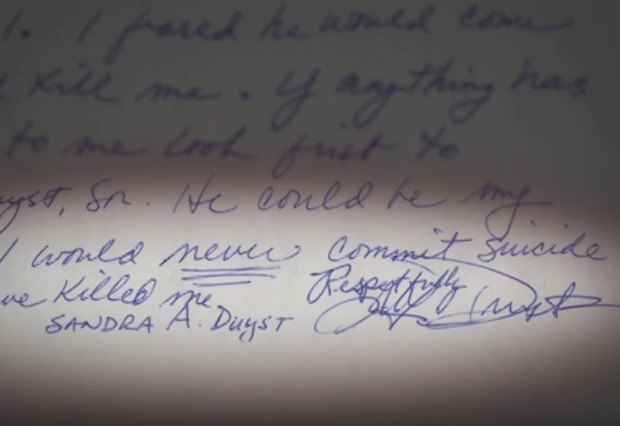 I feared he would come
kill me. If anything has
to me look first to
uyst, Sr. He could be my
I would never commit suicide
ve killed me Respectfully
SANDRA A. Duyst